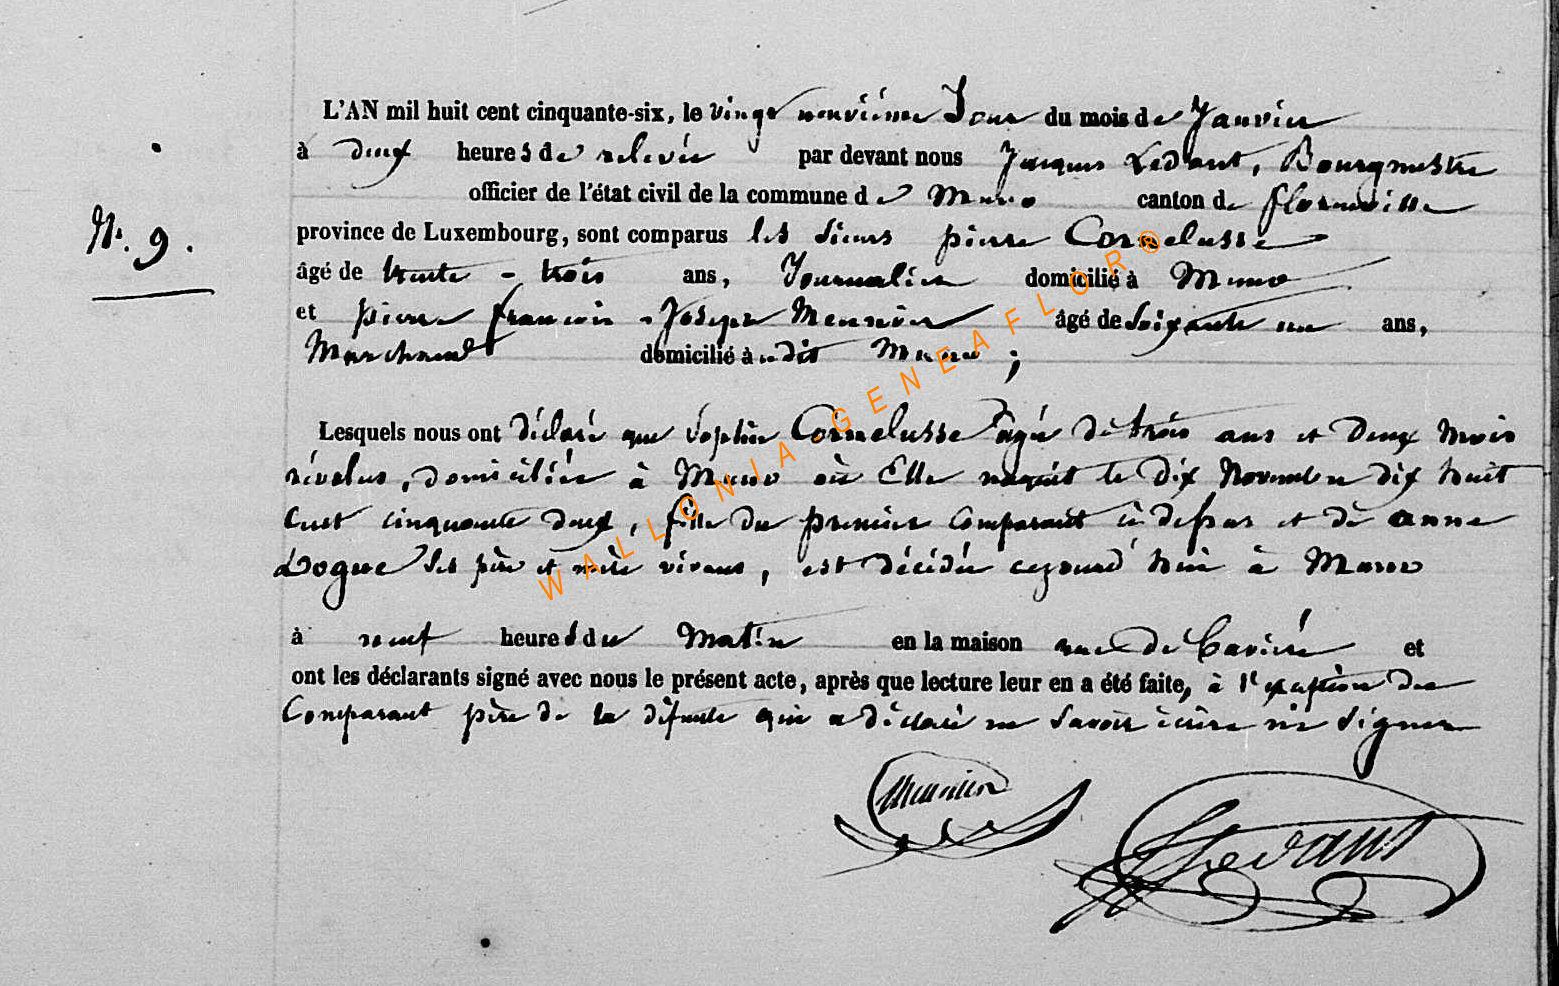 L'AN mil huit cent cinquante-six, le vingt neuvième Jour du mois de Janvier
à deux heures de relevée par devant nous Jacques Ledant, Bourgmestre
officier de l'état civil de la commune de Muno canton de florenville
N°. 9.
province de Luxembourg, sont comparus les sieurs pierre Cornelusse
âgé de trente-trois ans, Journalier domicilié à Muno
et pierre françois-Joseph Meunier âgé de soixante un ans,
Marchand domicilié à udit Muno ;
Lesquels nous ont déclaré que Sophie Cornelusse agée de trois ans et Deux Mois
révolus, domiciliée à Muno où Elle naquit le dix Novembre dix huit
Cent cinquante deux, fille du premier Comparant ci dessus et de anne
Dogue ses père et mère vivans, est décédée cejourd'huin à Muno
à neuf heures du Matin en la maison rue de et
ont les déclarants signé avec nous le présent acte, après que lecture leur en a été faite, à l'exeption du
Comparant père de la défunte qui a déclaré ne savoir écrire ni signer
Meunier
JLedant
WALLONIA GENEAFLOR®